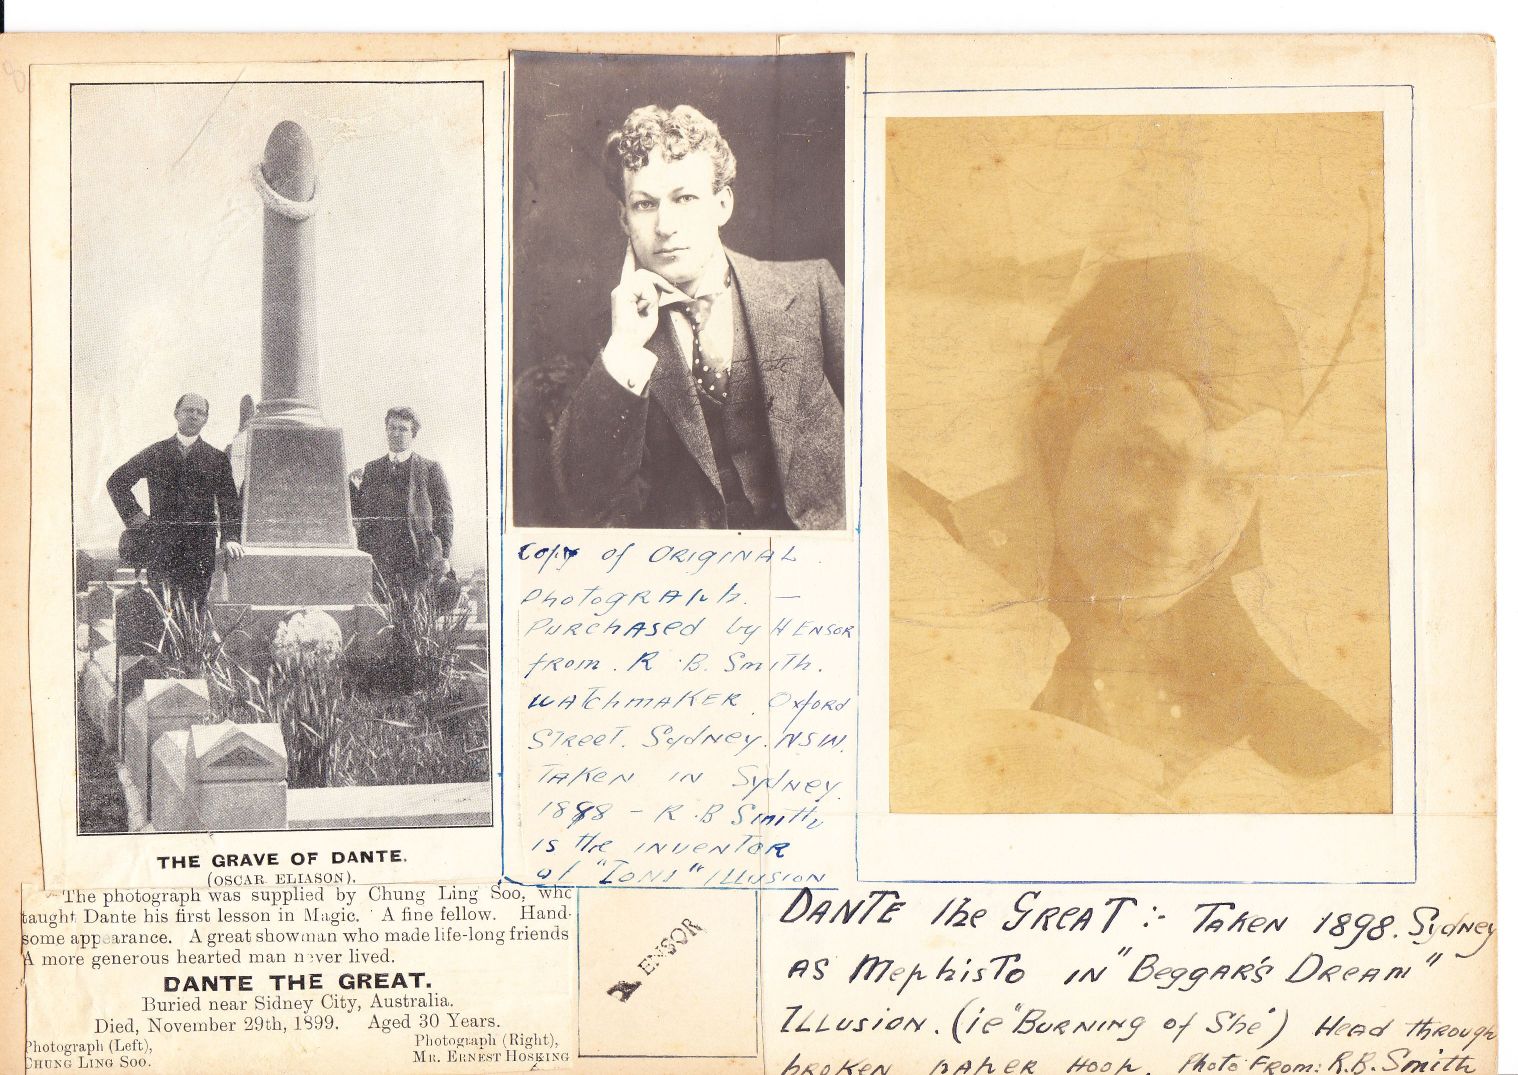 THE GRAVE OF DANTE.
(OSCAR ELIASON).
The photograph was supplied by Chung Ling Soo, who
taught Dante his first lesson in Magic. A fine fellow. Hand-
some appearance. A great showman who made life-long friends
A more generous hearted man never lived.
DANTE THE GREAT.
Buried near Sidney City, Australia.
Died, November 29th, 1899. Aged 30 Years.
Photograph (Left),
CHUNG LING SOO.
Photograph (Right),
MR. ERNEST HOSKING
Copy of ORIGINAL
PHOTOGRAPH. —
PURCHASED by H ENSOR
from R. B. Smith.
WATCHMAKER Oxford
Street. Sydney. NSW.
TAKEN IN Sydney.
1898 - R.B Smith
is the INVENTOR
of "IONS" ILLUSION
A ENSOR
DANTE the GREAT :- TAKEN 1898. Sydney
AS MEphisto IN "BEggAR'S DREAM"
ILLUSION. (ie "BURNING of She") HEAD through
BROKEN PAPER HOOP. Photo FROM: R.B. Smith